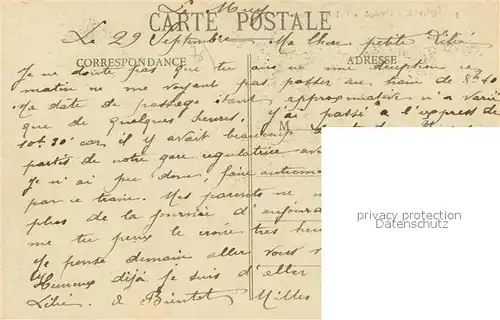 Le Muy
CARTE POSTALE
Le 29 Septembre Ma chere petite Lilie
CORRESPONDANCE ADRESSE
Je ne doute pas que tu aies eu une déception ce
matin ne me voyant pas passer au train de 8h 40
Ma date de passage étant approximative n'a varié
que de quelques heures. J'ai passé à l'express de
M
10h 30' car il y avait beaucoup
partis de notre gare regulatrice
Je n'ai pu donc, faire autrement
par ce train. Mes parents ne
plus de la journée d'aujourd
me tu peux le croire très heu
Je pense demain aller vous
Heureux déjà je suis d'aller
Lilie. à Bientot Milles
privacy protection
Datenschutz